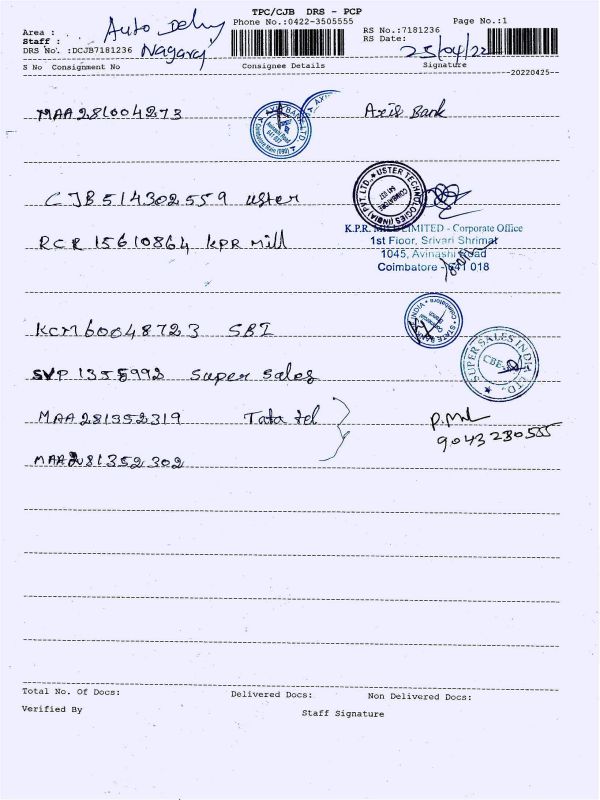 TPC/CJB DRS - PCP
Phone No.:0422-3505555
Page No.:1
Area : Auto Delvy
Staff : Nagaraj
DRS No. :DCJB7181236
RS No.:7181236
RS Date: 25/04/22
S No Consignment No Consignee Details Signature
20220425
MAA281004273 Axis Bank
AXIS BANK LTD.
CJB514302559 uster
USTER TECHNOLOGIES (INDIA) PVT. LTD.
COIMBATORE
641 037
RCR 15610864 KPR Mill
K.P.R. MILL LIMITED - Corporate Office
1st Floor, Srivari Shrimat
1045, Avinashi Road
Coimbatore - 641 018
KCM60048723 SBI
STATE BANK INDIA
SVP 1358992 Super Sales
SUPER SALES INDIA LTD.
CBE
MAA281352319 Tata tel
9043230555
MAA281352302
Total No. Of Docs: Delivered Docs: Non Delivered Docs:
Verified By Staff Signature